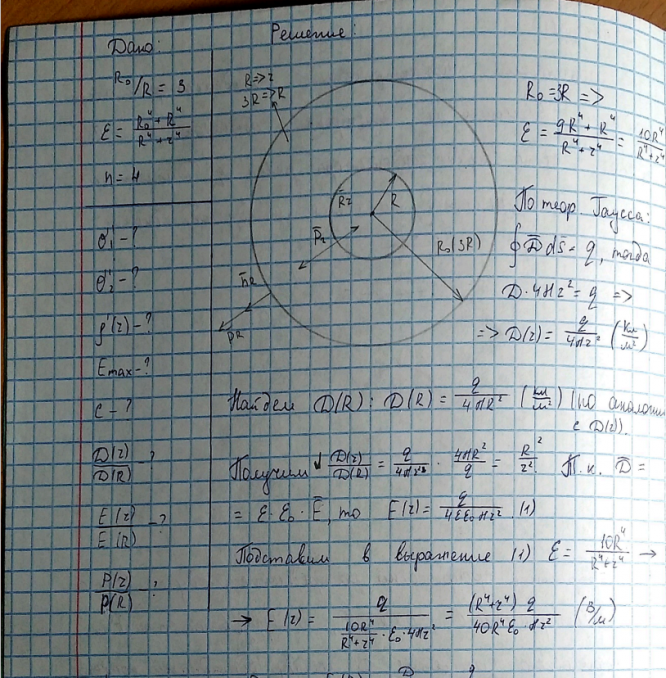 Дано:
R₀/R = 3
ε = (R₀ⁿ + Rⁿ)/(Rⁿ + rⁿ)
n = 4
σ₁' - ?
σ₂' - ?
ρ'(r) - ?
Emax - ?
C - ?
D(r)/D(R) - ?
E(r)/E(R) - ?
P(r)/P(R) - ?
Решение:
R => r
3R => R
R
R₀(3R)
R₀ = 3R =>
ε = (9R⁴ + R⁴)/(R⁴ + r⁴) = 10R⁴/(R⁴ + r⁴)
По теор. Гаусса:
∮ D̄ ds̄ = q, тогда
D · 4πr² = q =>
=> D(r) = q/(4πr²) (Кл/м²)
Найдем D(R): D(R) = q/(4πR²) (Кл/м²) (по аналогии
с D(r)).
Получим D(r)/D(R) = q/(4πr²) · 4πR²/q = R²/r². Т.к. D̄ =
= ε · ε₀ · Ē, то E(r) = q/(4εε₀πr²) (1)
Подставим в выражение (1) ε = 10R⁴/(R⁴ + r⁴) →
→ E(r) = q/(10R⁴/(R⁴ + r⁴) · ε₀ · 4πr²) = (R⁴ + r⁴) q/(40R⁴ε₀ · πr²) (В/м)